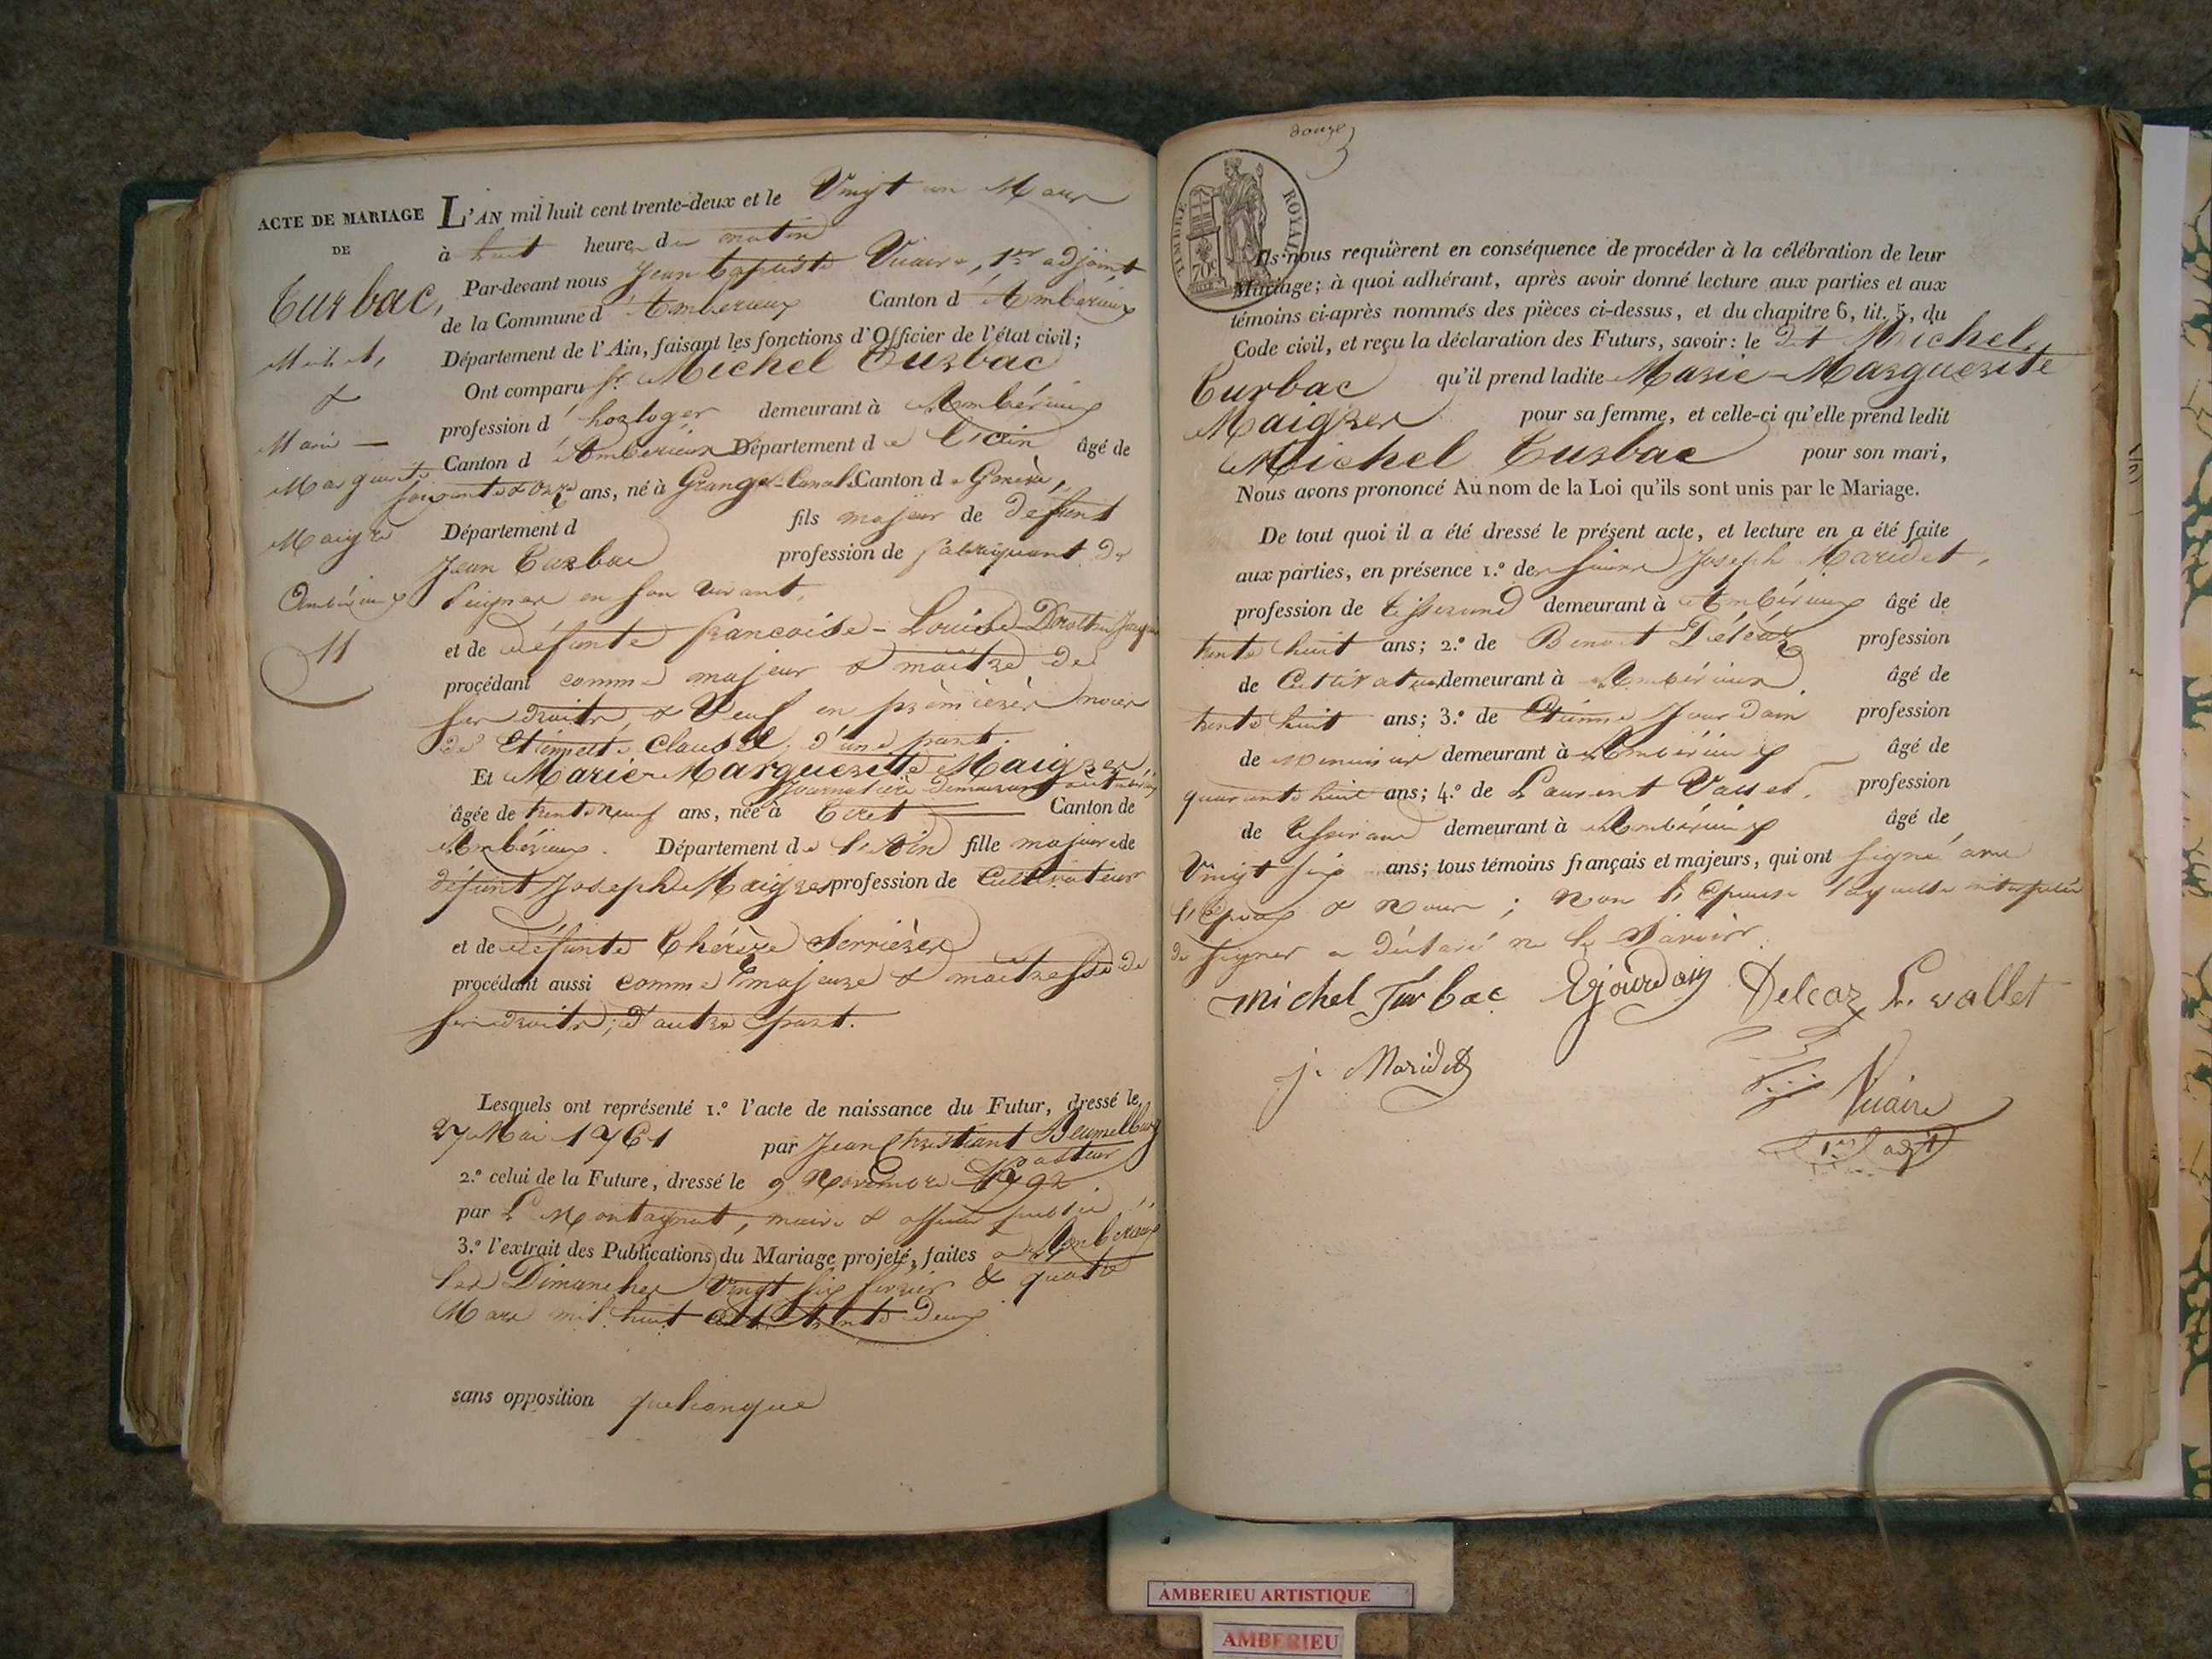 ACTE DE MARIAGE
DE
Turbac,
Michel,
&
Marie —
Marguerite
Maigre
Ambérieux
11
L'AN mil huit cent trente-deux et le Vingt un Mars
à huit heures du matin
Par-devant nous Jean Baptiste Vicaire, 1er adjoint
de la Commune d'Ambérieux Canton d'Ambérieux
Département de l'Ain, faisant les fonctions d'Officier de l'état civil;
Ont comparu Sr. Michel Turbac
profession d'horloger demeurant à Ambérieux
Canton d'Ambérieux Département de l'Ain âgé de
soixante & onze ans, né à Grange-Canal Canton de Genève,
Département d fils majeur de defunt
Jean Turbac profession de fabriquant de
Peignes en son vivant,
et de défunte francoise-Louise-Dorothée
procédant comme majeur & maître de
ses droits, & Veuf en premières noces
de Clause, d'une part.
Et Marie-Marguerite Maigre,
journalière demeurant
âgée de trente neuf ans, née à Tiret Canton de
Ambérieux. Département de l'Ain fille majeure de
défunt Joseph Maigre profession de Cultivateur
et de défunte Thérèze Serrière
procédant aussi comme majeure & maîtresse de
ses droits; d'autre part.
Lesquels ont représenté 1.º l'acte de naissance du Futur, dressé le
27 Mai 1761 par Jean Christiant
Pasteur
2.º celui de la Future, dressé le 9 Novembre 1792
par L Montagnat, maire & officier public
3.º l'extrait des Publications du Mariage projeté, faites à Ambérieux
les Dimanches Vingt six fevrier & quatre
Mars mil huit cent trente deux
sans opposition quelconque
douze
TIMBRE ROYAL
70c
Ils nous requièrent en conséquence de procéder à la célébration de leur
Mariage; à quoi adhérant, après avoir donné lecture aux parties et aux
témoins ci-après nommés des pièces ci-dessus, et du chapitre 6, tit. 5, du
Code civil, et reçu la déclaration des Futurs, savoir: le dit Michel
Turbac qu'il prend ladite Marie-Marguerite
Maigre pour sa femme, et celle-ci qu'elle prend ledit
Michel Turbac pour son mari,
Nous avons prononcé Au nom de la Loi qu'ils sont unis par le Mariage.
De tout quoi il a été dressé le présent acte, et lecture en a été faite
aux parties, en présence 1.º de Joseph Maridet,
profession de tisserand demeurant à Ambérieux âgé de
trente huit ans; 2.º de Benoit Déléaz profession
de Cultivateur demeurant à Ambérieux âgé de
trente huit ans; 3.º de Etienne Jourdain profession
de Menuisier demeurant à Ambérieux âgé de
quarante huit ans; 4.º de Laurent Vallet, profession
de tisserand demeurant à Ambérieux âgé de
Vingt six ans; tous témoins français et majeurs, qui ont signé avec
l'Epoux & nous; non l'Epouse laquelle interpelée
de signer a déclaré ne le savoir.
michel Turbac Ejourdain Deleaz L. vallet
j. Maridet
Vicaire
1er adjt
AMBERIEU ARTISTIQUE
AMBERIEU